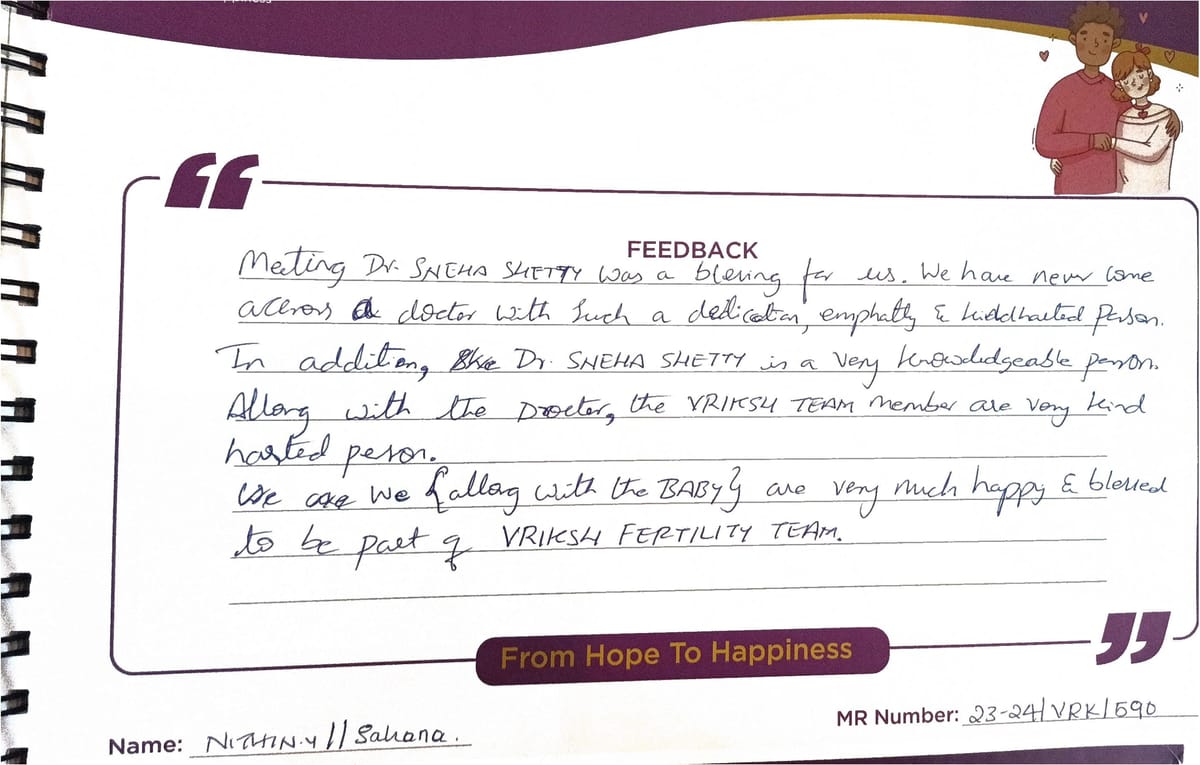 FEEDBACK
Meeting Dr. SNEHA SHETTY was a blessing for us. We have never come
across a doctor with such a dedication, emphatly & kiddharted person.
In addition, She Dr. SNEHA SHETTY is a very knowledgeable person.
Allong with the Doctor, the VRIKSH TEAM member are very kind
harted person.
We are We {allong with the BABY} are very much happy & blessed
to be part of VRIKSH FERTILITY TEAM.
From Hope To Happiness
MR Number: 23-24/VRK/590
Name: NITHIN.Y // Sahana.